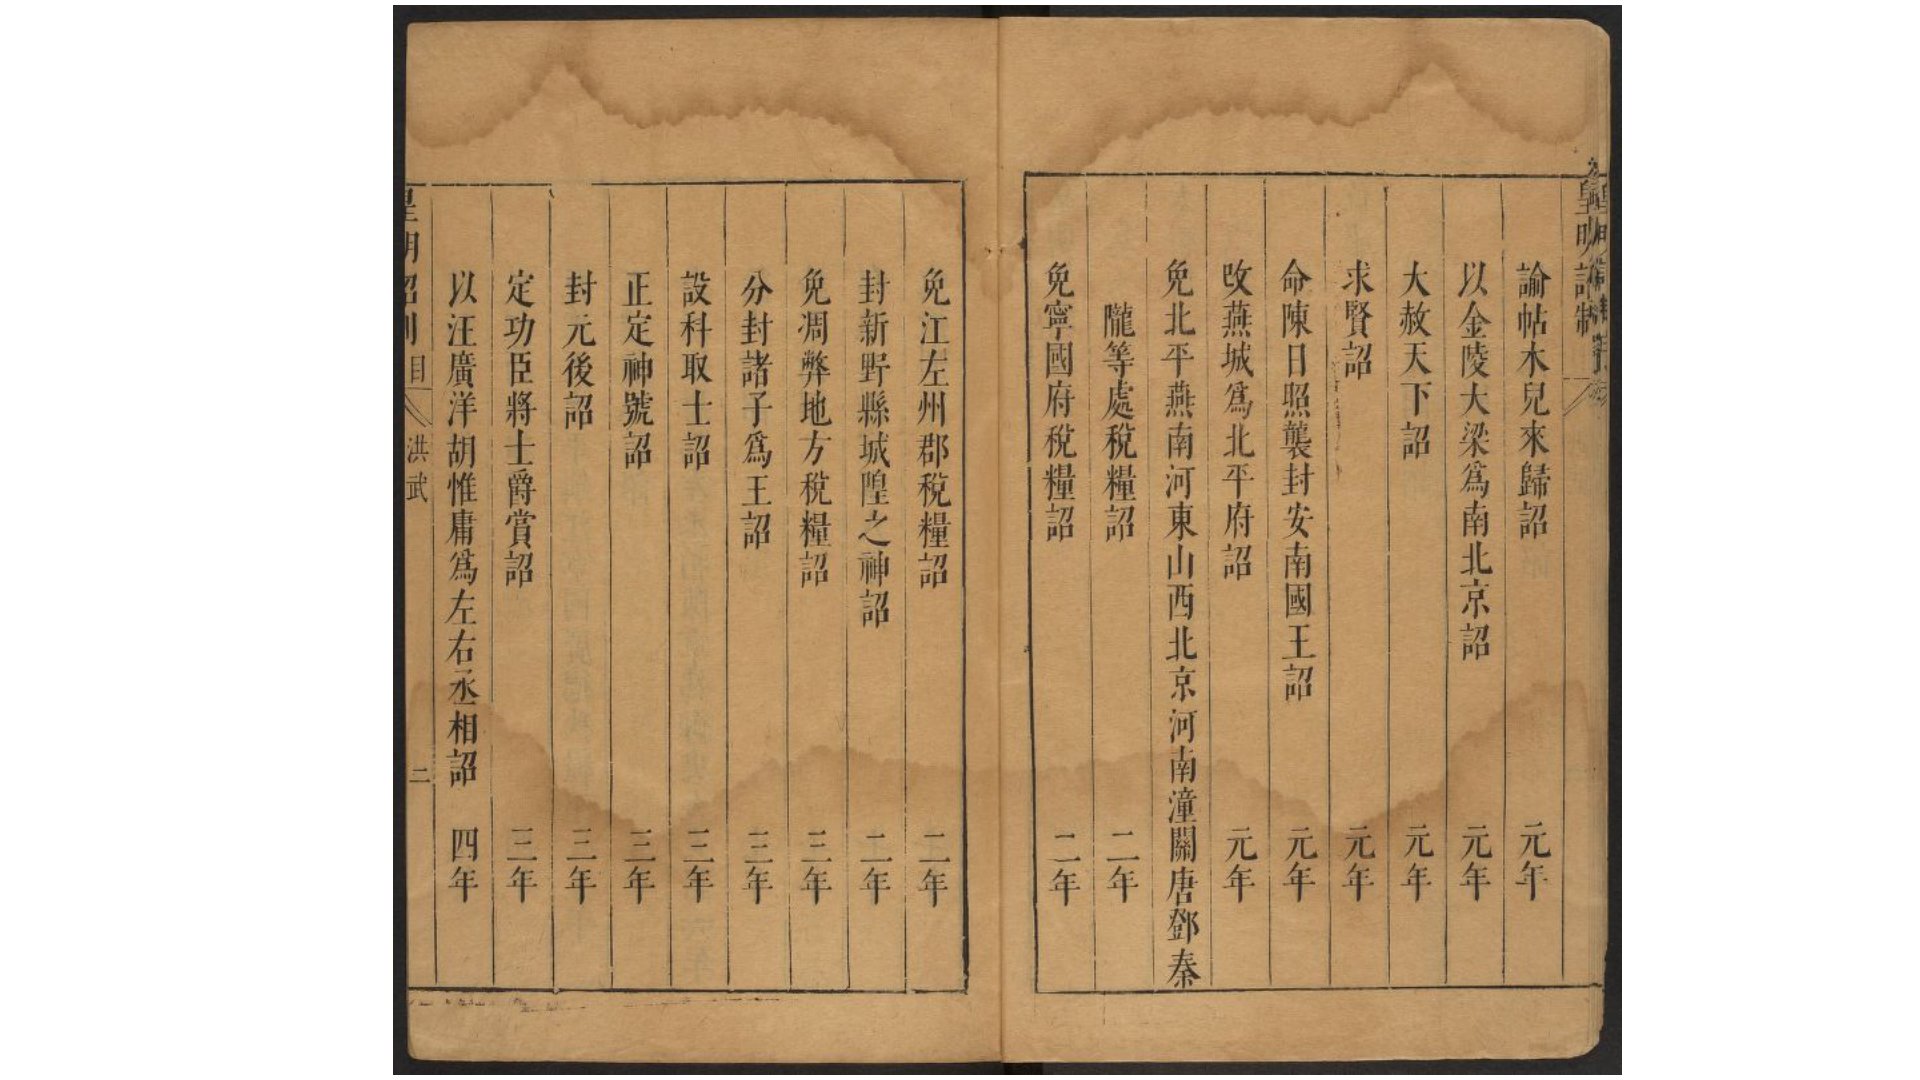 皇明詔制
諭帖木兒來歸詔 元年
以金陵大梁爲南北京詔 元年
大赦天下詔 元年
求賢詔 元年
命陳日照襲封安南國王詔 元年
改燕城爲北平府詔 元年
免北平燕南河東山西北京河南潼關唐鄧秦
隴等處稅糧詔 二年
免寧國府稅糧詔 二年
免江左州郡稅糧詔 二年
封新野縣城隍之神詔 二年
免凋弊地方稅糧詔 三年
分封諸子爲王詔 三年
設科取士詔 三年
正定神號詔 三年
封元後詔 三年
定功臣將士爵賞詔 三年
以汪廣洋胡惟庸爲左右丞相詔 四年
皇明詔制 目 洪武 二